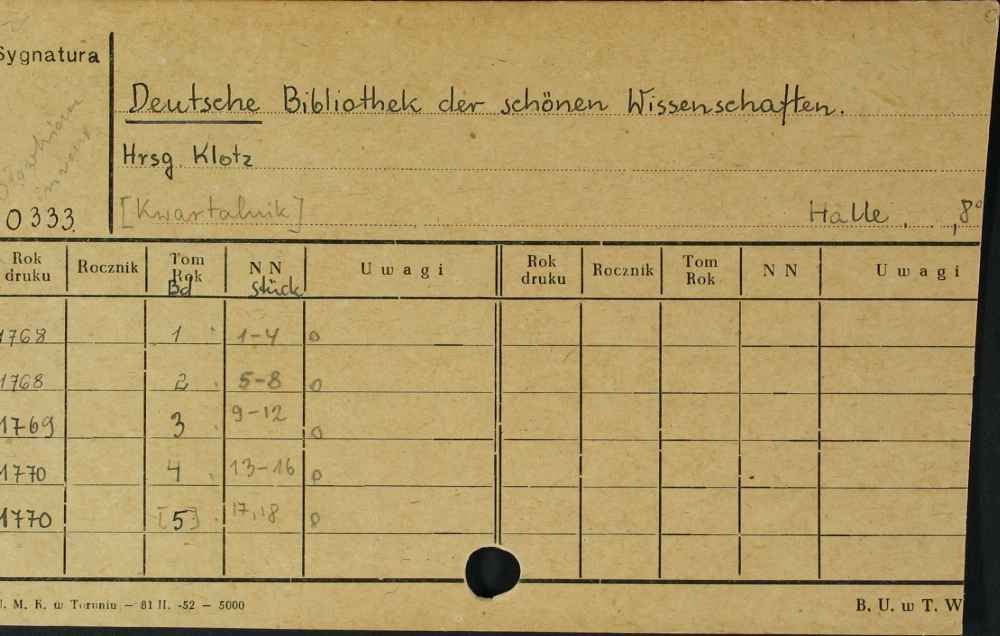 Sygnatura
Deutsche Bibliothek der schönen Wissenschaften.
Hrsg. Klotz
0333
[Kwartalnik] Halle, , 8°
Rok druku Rocznik Tom Rok Bd NN stück Uwagi Rok druku Rocznik Tom Rok NN Uwagi
1768 1 1-4 0
1768 2 5-8 0
1769 3 9-12 0
1770 4 13-16 0
1770 [5] 17,18 0
U. M. K. w Toruniu — 81 II. -52 — 5000 B. U. w T. W